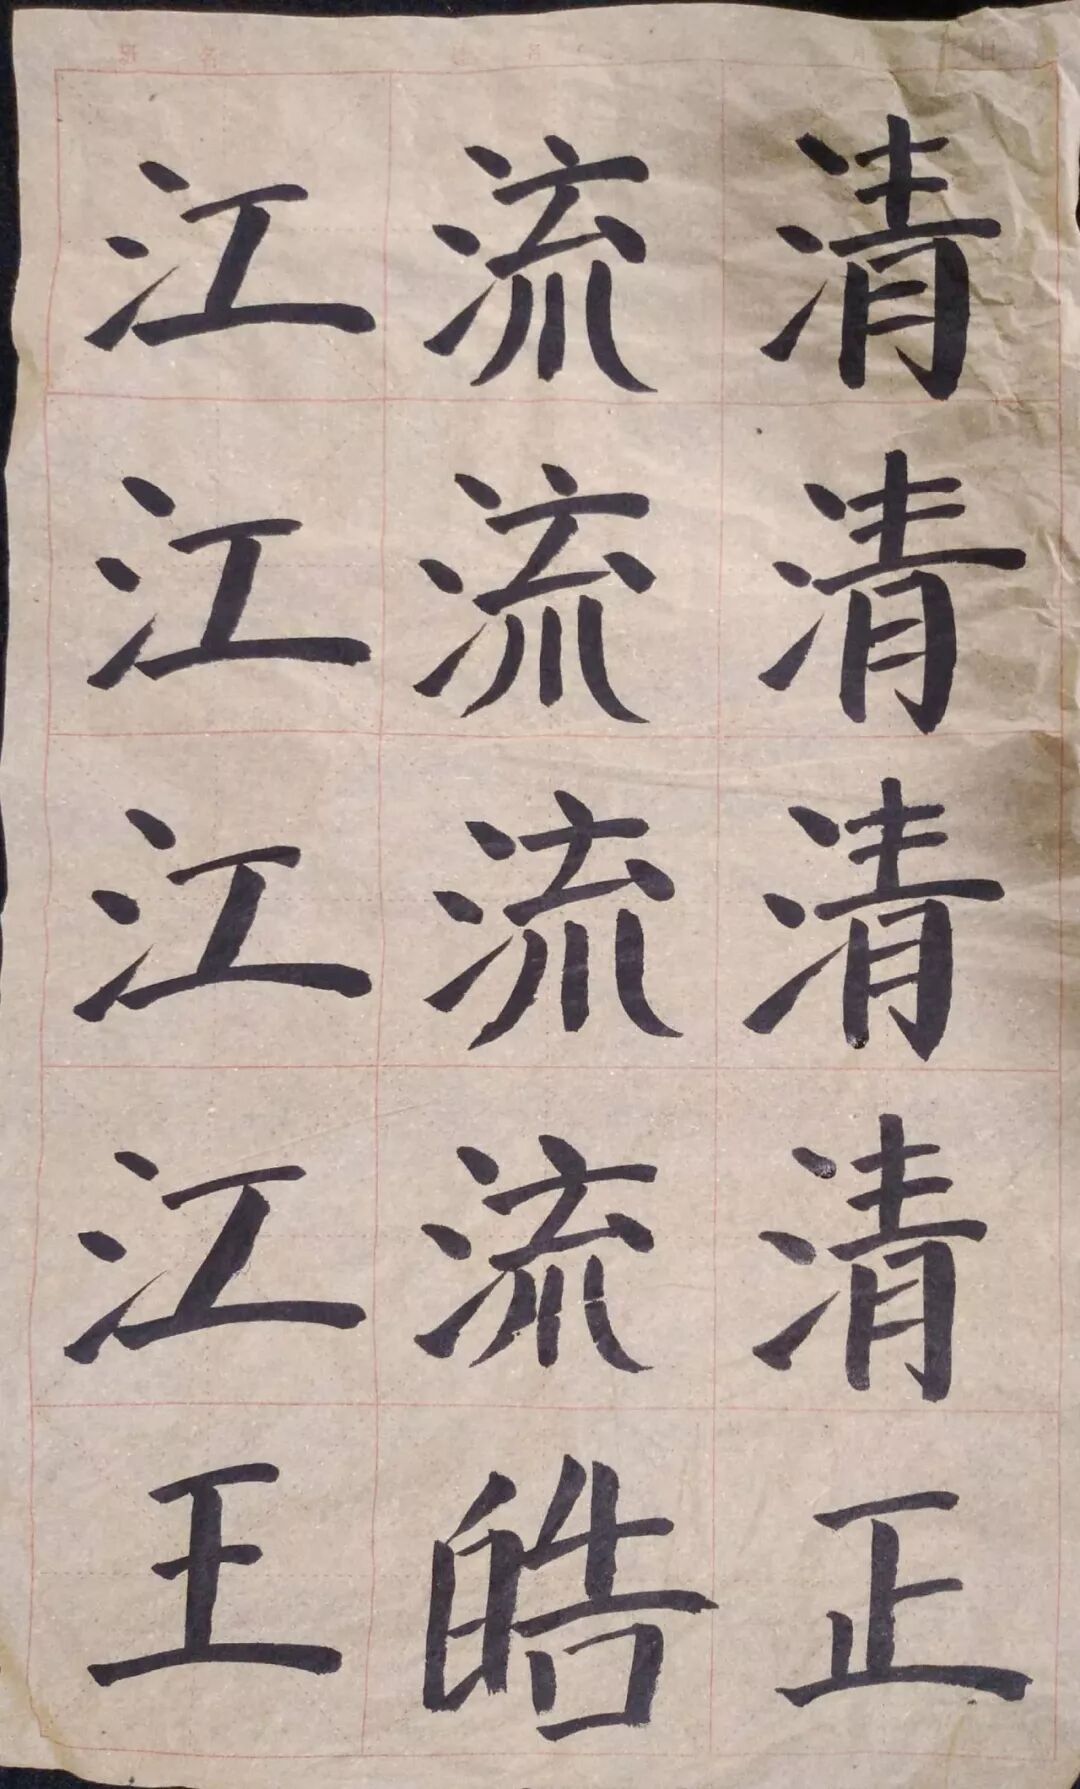 江流清
江流清
江流清
江流清
王皓正